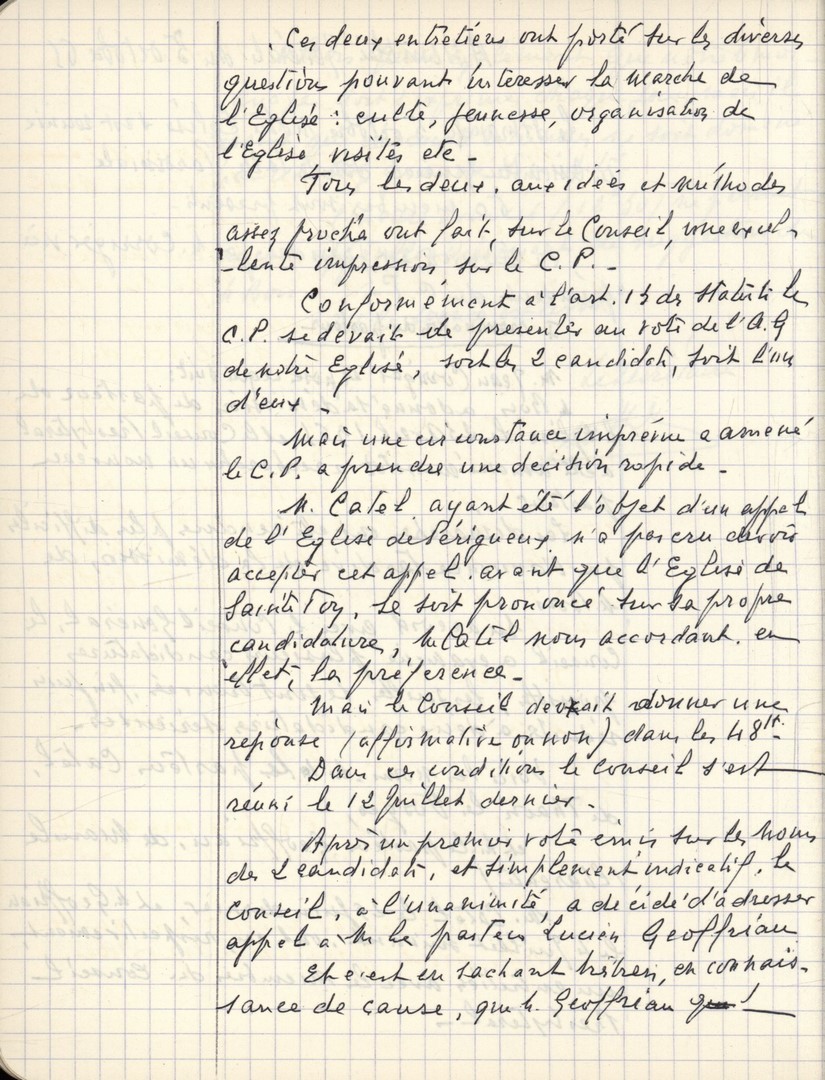 Ces deux entretiens ont porté sur les diverses
questions pouvant intéresser la marche de
l'Eglise : culte, jeunesse, organisation de
l'Eglise visites etc -
Tous les deux, aux idées et méthodes
assez proches ont fait, sur le Conseil, une excel-
-lente impression sur le C.P. -
Conformément à l'art. 13 des Statuts le
C.P. se devait de présenter au vote de l'A.G
de notre Eglise, soit les 2 candidats, soit l'un
d'eux -
Mais une circonstance imprévue a amené
le C.P. a prendre une décision rapide -
M. Catel ayant été l'objet d'un appel
de l'Eglise de Périgueux n'a pas cru devoir
accepter cet appel avant que l'Eglise de
Sainte Foy, se soit prononcé sur sa propre
candidature, M. Catel nous accordant, en
effet, la préférence -
Mais le Conseil devait donner une
réponse (affirmative ou non) dans les 48 H -
Dans ces conditions le Conseil s'est
réuni le 12 Juillet dernier -
Après un premier vote émis sur les noms
des 2 candidats, et simplement indicatif, le
Conseil, à l'unanimité, a décidé d'adresser
appel à M. le pasteur Lucien Geoffriau
Et c'est en sachant très bien, en connais-
sance de cause, que M. Geoffriau